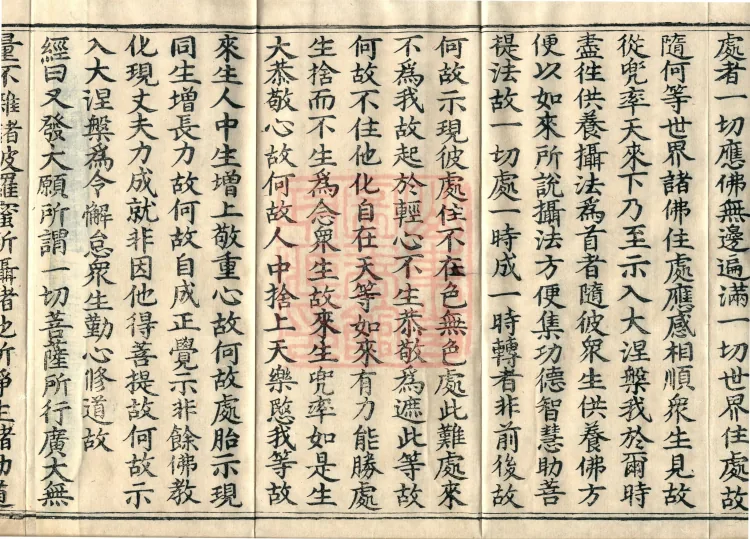 處者一切應佛無邊遍滿一切世界住處故
隨何等世界諸佛住處應感相順衆生見故
從兜率天來下乃至示入大涅槃我於爾時
盡徃供養攝法爲首者隨彼衆生供養佛方
便以如來所說攝法方便集功德智慧助菩
提法故一切處一時成一時轉者非前後故
何故示現彼處住不在色無色處此難處來
不爲我故起於輕心不生恭敬爲遮此等故
何故不住他化自在天等如來有力能勝處
生捨而不生爲念衆生故來生兜率如是生
大恭敬心故何故人中捨上天樂愍我等故
來生人中生增上敬重心故何故處胎示現
同生增長力故何故自成正覺示非餘佛教
化現丈夫力成就非因他得菩提故何故示
入大涅槃爲令懈怠衆生勤心修道故
經曰又發大願所謂一切菩薩所行廣大無
量不雜諸波羅蜜所攝者地所淨生諸助道